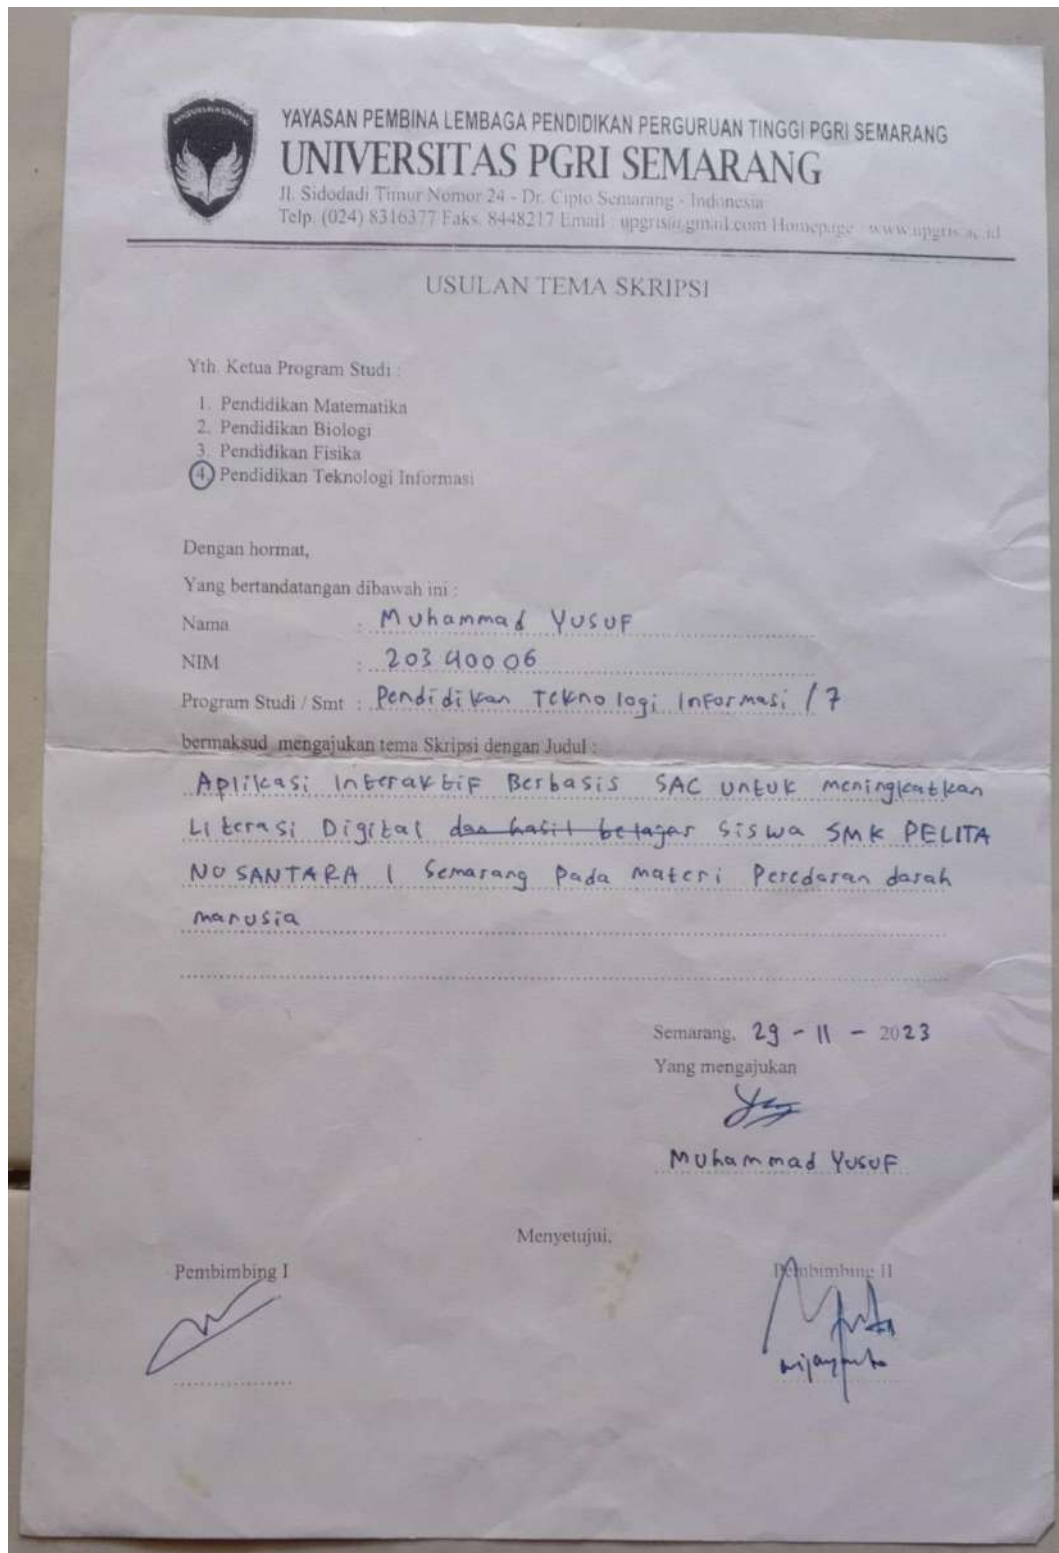 YAYASAN PEMBINA LEMBAGA PENDIDIKAN PERGURUAN TINGGI PGRI SEMARANG
UNIVERSITAS PGRI SEMARANG
Jl. Sidodadi Timur Nomor 24 - Dr. Cipto Semarang - Indonesia
Telp. (024) 8316377 Faks. 8448217 Email : upgris@gmail.com Homepage : www.upgris.ac.id
USULAN TEMA SKRIPSI
Yth. Ketua Program Studi :
1. Pendidikan Matematika
2. Pendidikan Biologi
3. Pendidikan Fisika
4. Pendidikan Teknologi Informasi
Dengan hormat,
Yang bertandatangan dibawah ini :
Nama : Muhammad Yusuf
NIM : 20340006
Program Studi / Smt : Pendidikan Teknologi Informasi / 7
bermaksud mengajukan tema Skripsi dengan Judul :
Aplikasi Interaktif Berbasis SAC untuk meningkatkan
Literasi Digital dan hasil belajar Siswa SMK PELITA
NUSANTARA 1 Semarang Pada materi Peredaran darah
manusia
Semarang, 29 - 11 - 2023
Yang mengajukan
Muhammad Yusuf
Menyetujui,
Pembimbing I
Pembimbing II
wijayanto